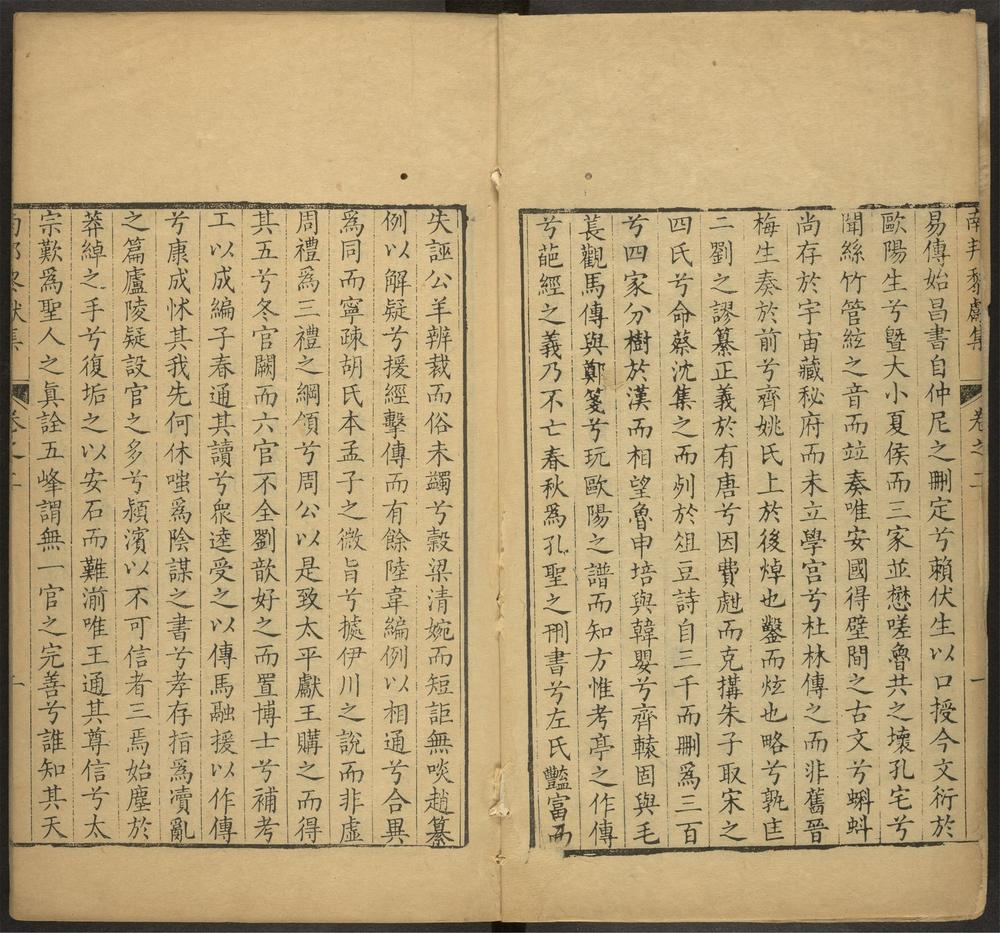 南邦黎獻集 卷之二 一
易傳始昌書自仲尼之刪定兮賴伏生以口授今文衍於
歐陽生兮曁大小夏侯而三家並懋嗟魯共之壞孔宅兮
聞絲竹管絃之音而竝奏唯安國得壁間之古文兮蝌蚪
尚存於宇宙藏秘府而未立學宮兮杜林傳之而非舊晉
梅生奏於前兮齊姚氏上於後焯也鑿而炫也略兮孰匡
二劉之謬纂正義於有唐兮因費甝而克搆朱子取宋之
四氏兮命蔡沈集之而列於俎豆詩自三千而刪爲三百
兮四家分樹於漢而相望魯申培與韓嬰兮齊轅固與毛
萇觀馬傳與鄭箋兮玩歐陽之譜而知方惟考亭之作傳
兮葩經之義乃不亡春秋爲孔聖之刑書兮左氏豔富而
失誣公羊辨裁而俗未蠲兮穀梁清婉而短詎無啖趙纂
例以解疑兮援經擊傳而有餘陸韋編例以相通兮合異
爲同而寧疎胡氏本孟子之微旨兮據伊川之說而非虛
周禮爲三禮之綱領兮周公以是致太平獻王購之而得
其五兮冬官闕而六官不全劉歆好之而置博士兮補考
工以成編子春通其讀兮衆逵受之以傳馬融援以作傳
兮康成怵其我先何休嗤爲陰謀之書兮孝存指爲瀆亂
之篇廬陵疑設官之多兮潁濱以不可信者三焉始塵於
莽綽之手兮復垢之以安石而難湔唯王通其尊信兮太
宗歎爲聖人之真詮五峰謂無一官之完善兮誰知其天